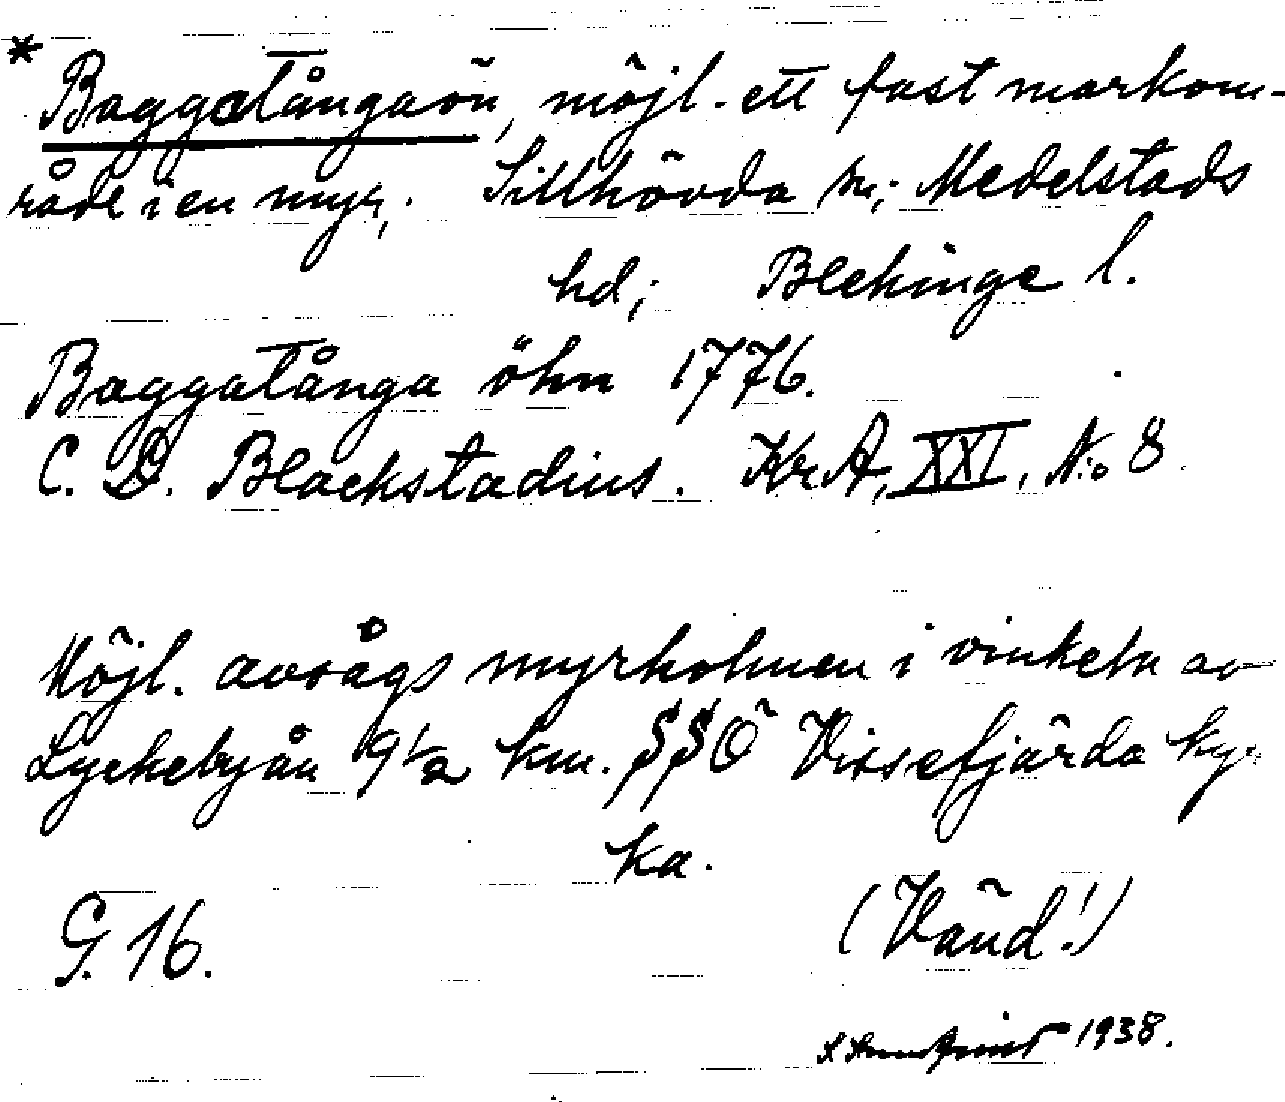 * Baggatångaön, möjl. ett fast markom-
råde i en myr,. Sillhövda sn; Medelstads
hd; Blekinge l.
Baggatånga öhn 1776.
C. D. Blackstadius. KrA, XXI, N:o 8.
Möjl. avsågs myrholmen i vinkeln av
Lyckebyån 9 1/2 km. SSÖ Vissefjärda kyr-
ka.
G. 16.
(Vänd!)
1938.